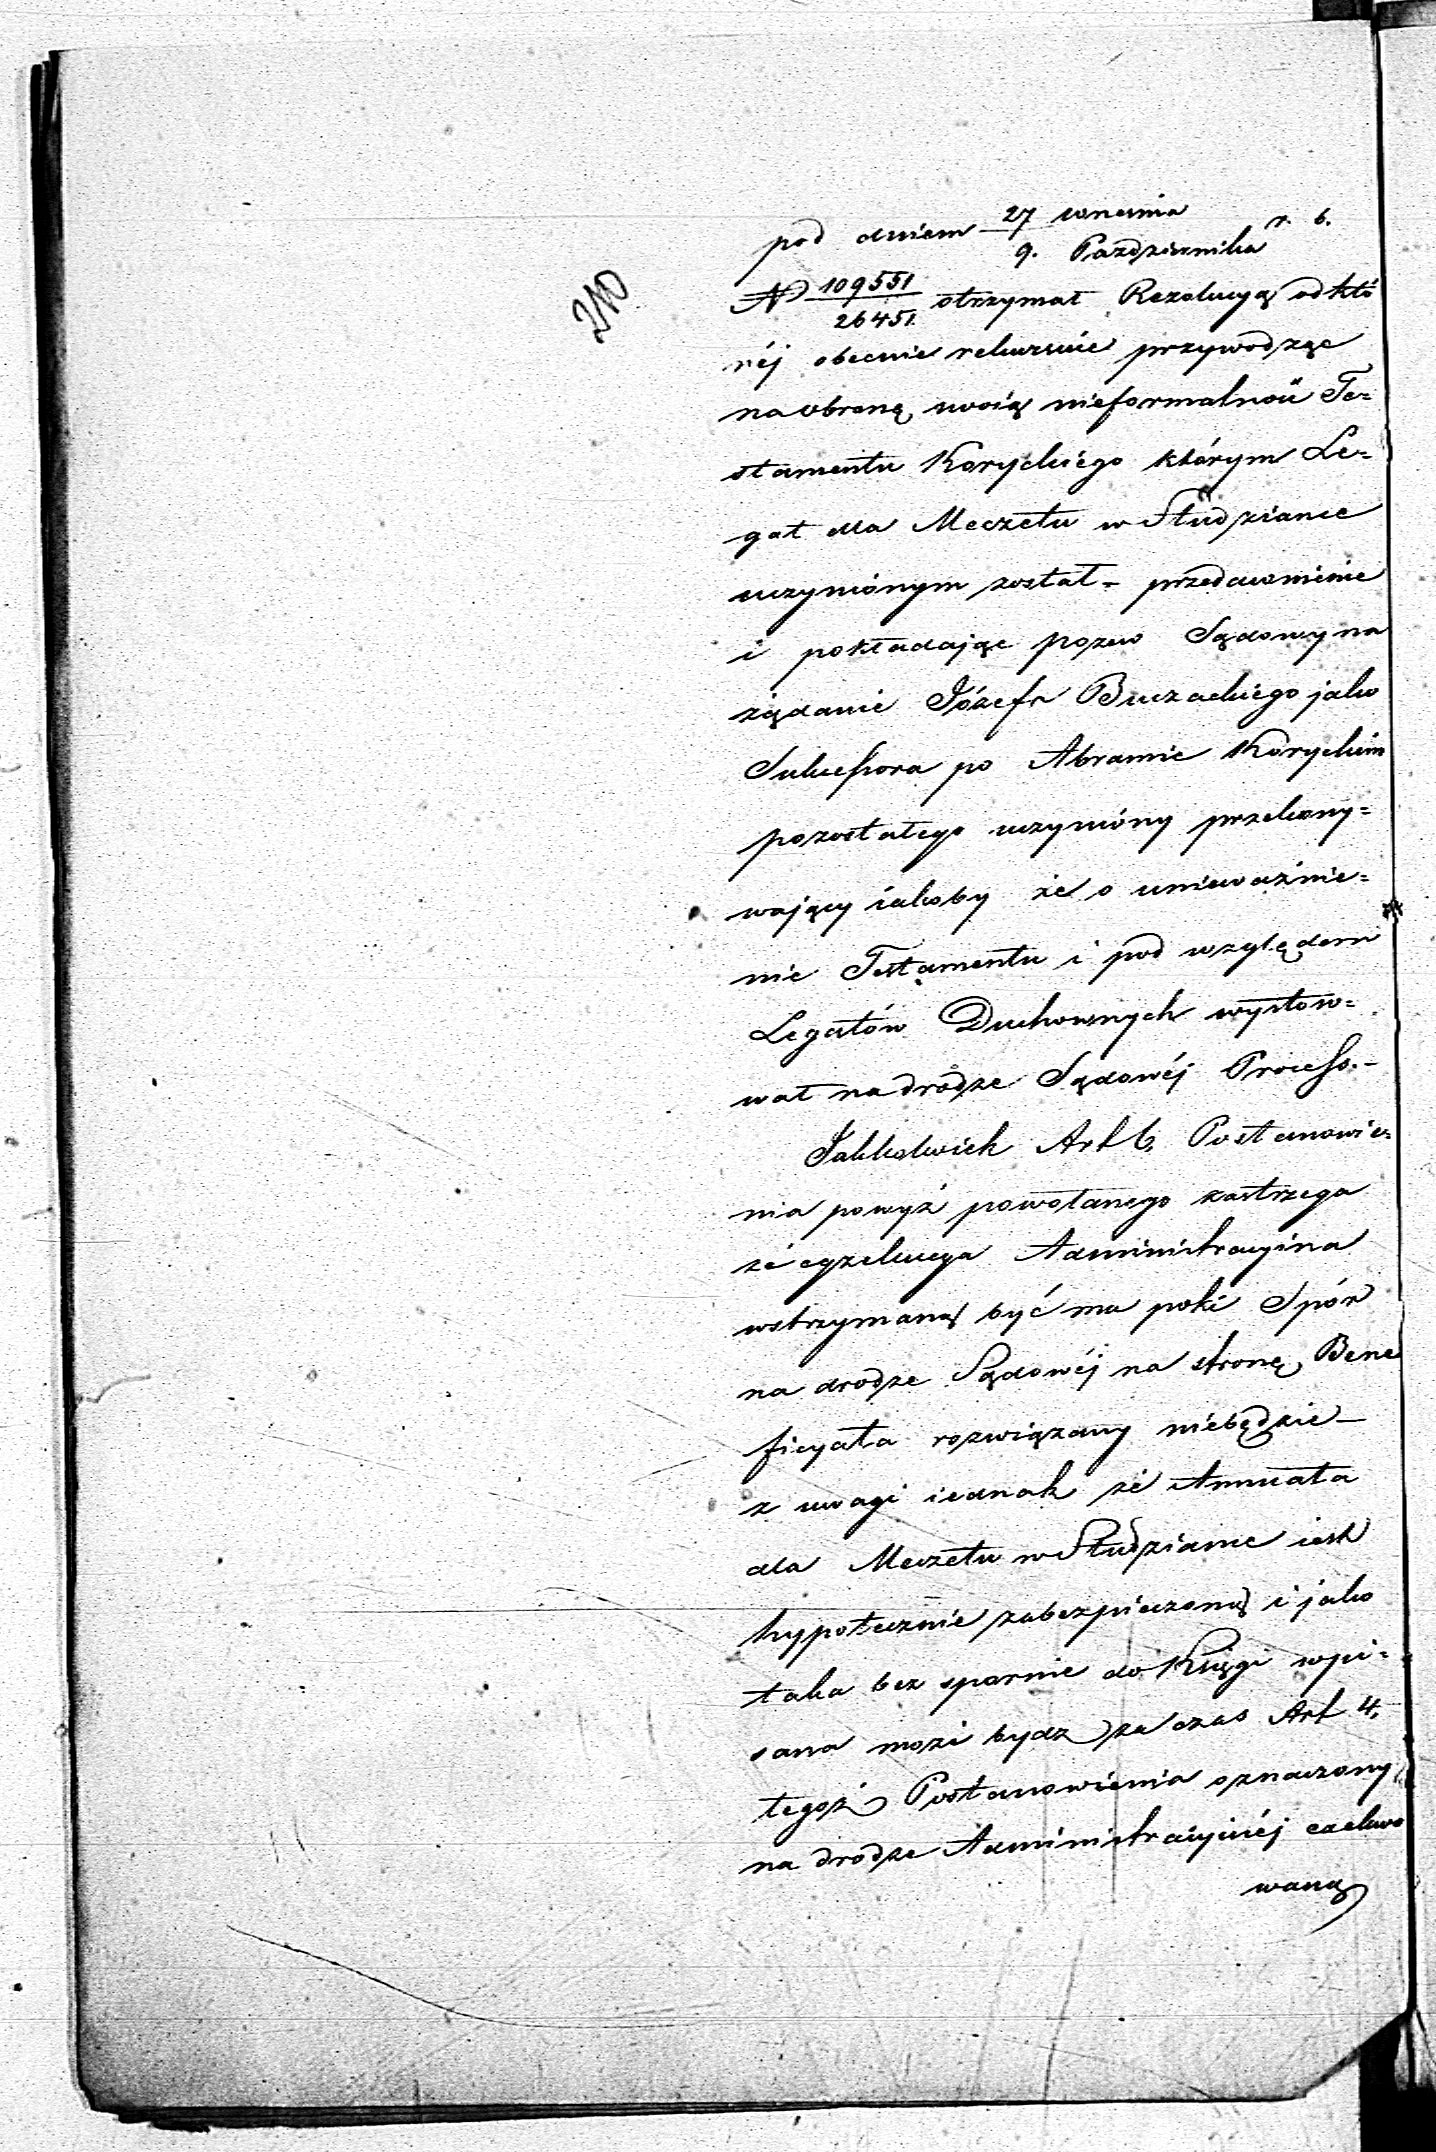 210
pod dniem 27 wrzesnia / 9. Pazdziernika r. b.
N 109551 / 26451. otrzymał Rezolucyą od któ
réj obecnie rekursuie przywodząc
na obronę swoią nieformalność Te=
stamentu Koryckiego którym Le=
gat dla Meczetu w Studziance
uczynionym został = przedawnienie
i pokładając pozew Sądowy na
żądanie Józefa Buczackiego jako
Sukcessora po Abramie Koryckim
pozostałego uczyniony przekony=
wający iakoby że o unieważnie=
nie Testamentu i pod względem
Legatów Duchownych wystoso=
wał na drodze Sądowéj Process. –
Jakkolwiek Art 6. Postanowie=
nia powyż powołanego zastrzega
że egzekucya Administracyina
wstrzymaną być ma poki Spór
na drodze Sądowéj na stronę Bene
ficyata rozwiązany niebędzie –
z uwagi iednak że Annuata
dla Meczetu w Studziance iest
hypotecznie zabezpieczoną i jako
taka bez spornie do Księgi wpi=
sana może bydz za czas Art 4.
tegoż Postanowienia oznaczony
na drodze Administracyinéj exekwo
waną